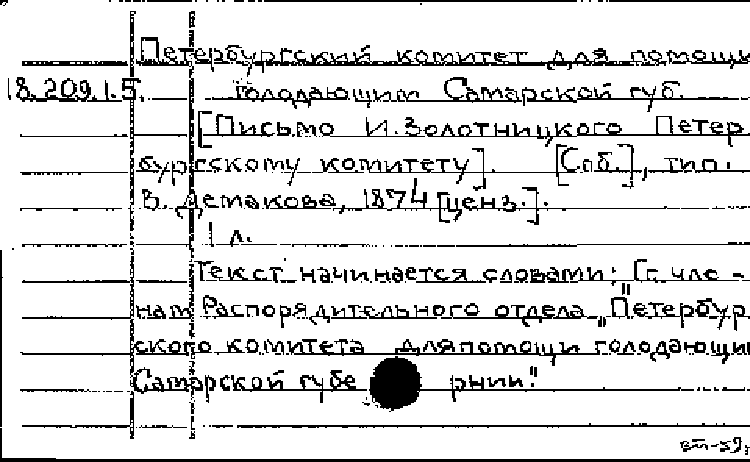 Петербургский комитет для помощи
18.209.1.5. голодающим Самарской губ.
[Письмо И. Золотницкого Петер
бургскому комитету]. [Спб.], тип.
В. Демакова, 1874 [ценз.].
1 л.
Текст начинается словами: Гг. чле -
нам Распорядительного отдела „Петербур
ского комитета для помощи голодающим
Самарской губе рнии."